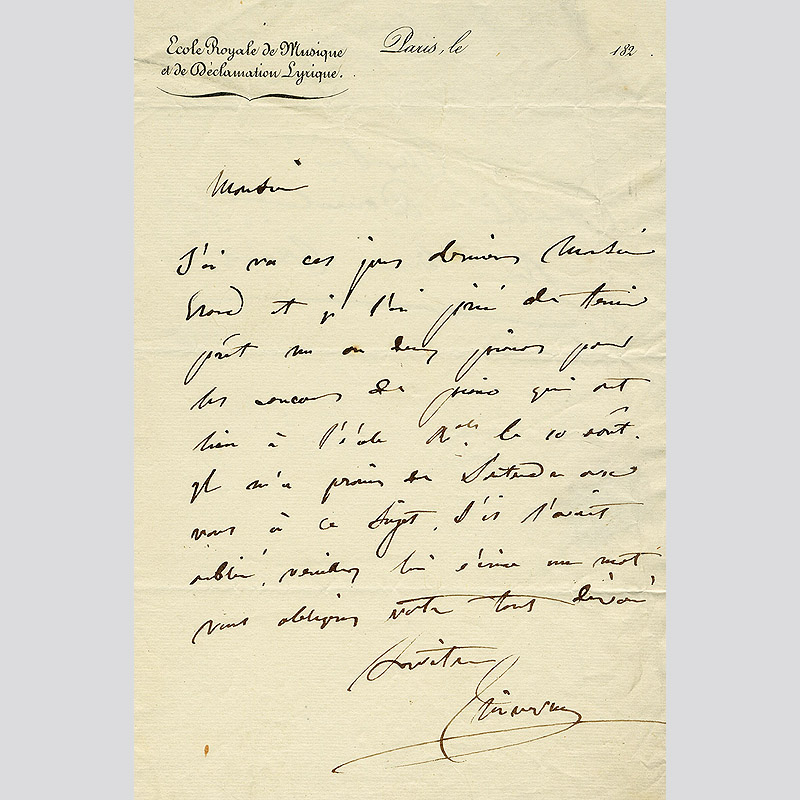 Ecole Royale de Musique
et de Déclamation Lyrique.
Paris, le 182
Monsieur
J'ai vu ces jours derniers Monsieur
Erard et je l'ai prié de tenir
prêt un ou deux pianos pour
les concours de piano qui ont
lieu à l'école R.ale le 10 août.
Il m'a promis de s'entendre avec
vous à ce sujet. S'il l'avait
oublié, veuillez lui écrire un mot
vous obligerez votre tout dévoué
Serviteur